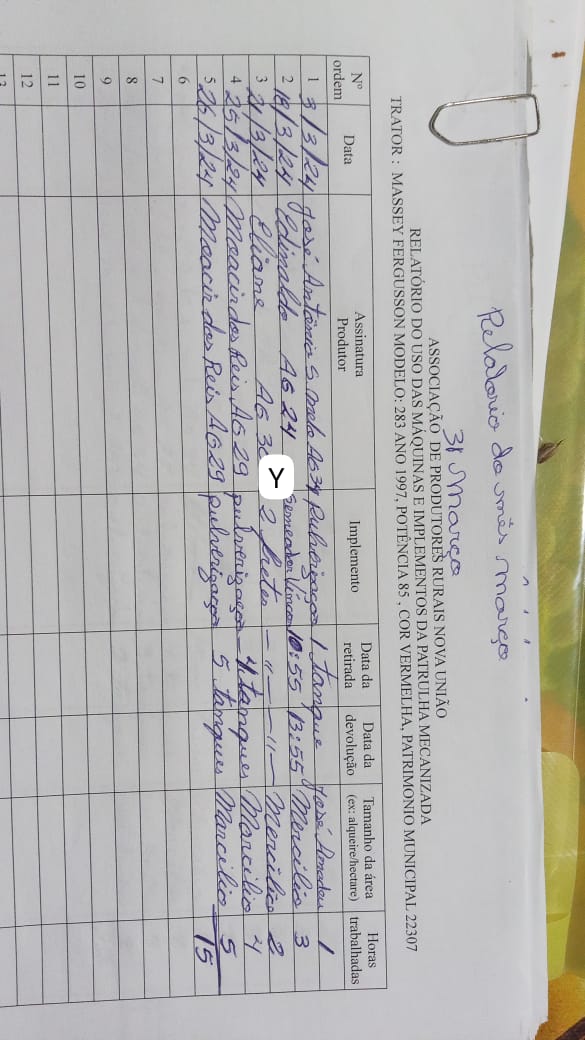 Relatorio do mês março
31 Março
ASSOCIAÇÃO DE PRODUTORES RURAIS NOVA UNIÃO
RELATÓRIO DO USO DAS MÁQUINAS E IMPLEMENTOS DA PATRULHA MECANIZADA
TRATOR : MASSEY FERGUSSON MODELO: 283 ANO 1997, POTÊNCIA 85 , COR VERMELHA, PATRIMONIO MUNICIPAL 22307
Nº ordem Data Assinatura Produtor Implemento Data da retirada Data da devolução Tamanho da área (ex: alqueire/hectare) Horas trabalhadas
1 3/3/24 José Antônio S melo AG 34 Pulverização 1 Tanque José Amadeu 1
2 18/3/24 Edinaldo AG 24 Semeador 10:55 13:55 Mercilio 3
3 21/3/24 Eliane AG 30 2 fretes -"- -"- Mercilio 2
4 25/3/24 Moacir dos Reis AG 29 pulverização 4 tanques Marcilio 4
5 26/3/24 Moacir dos Reis AG 29 pulverização 5 tanques Marcilio 5
15
6
7
8
9
10
11
12
13
Y